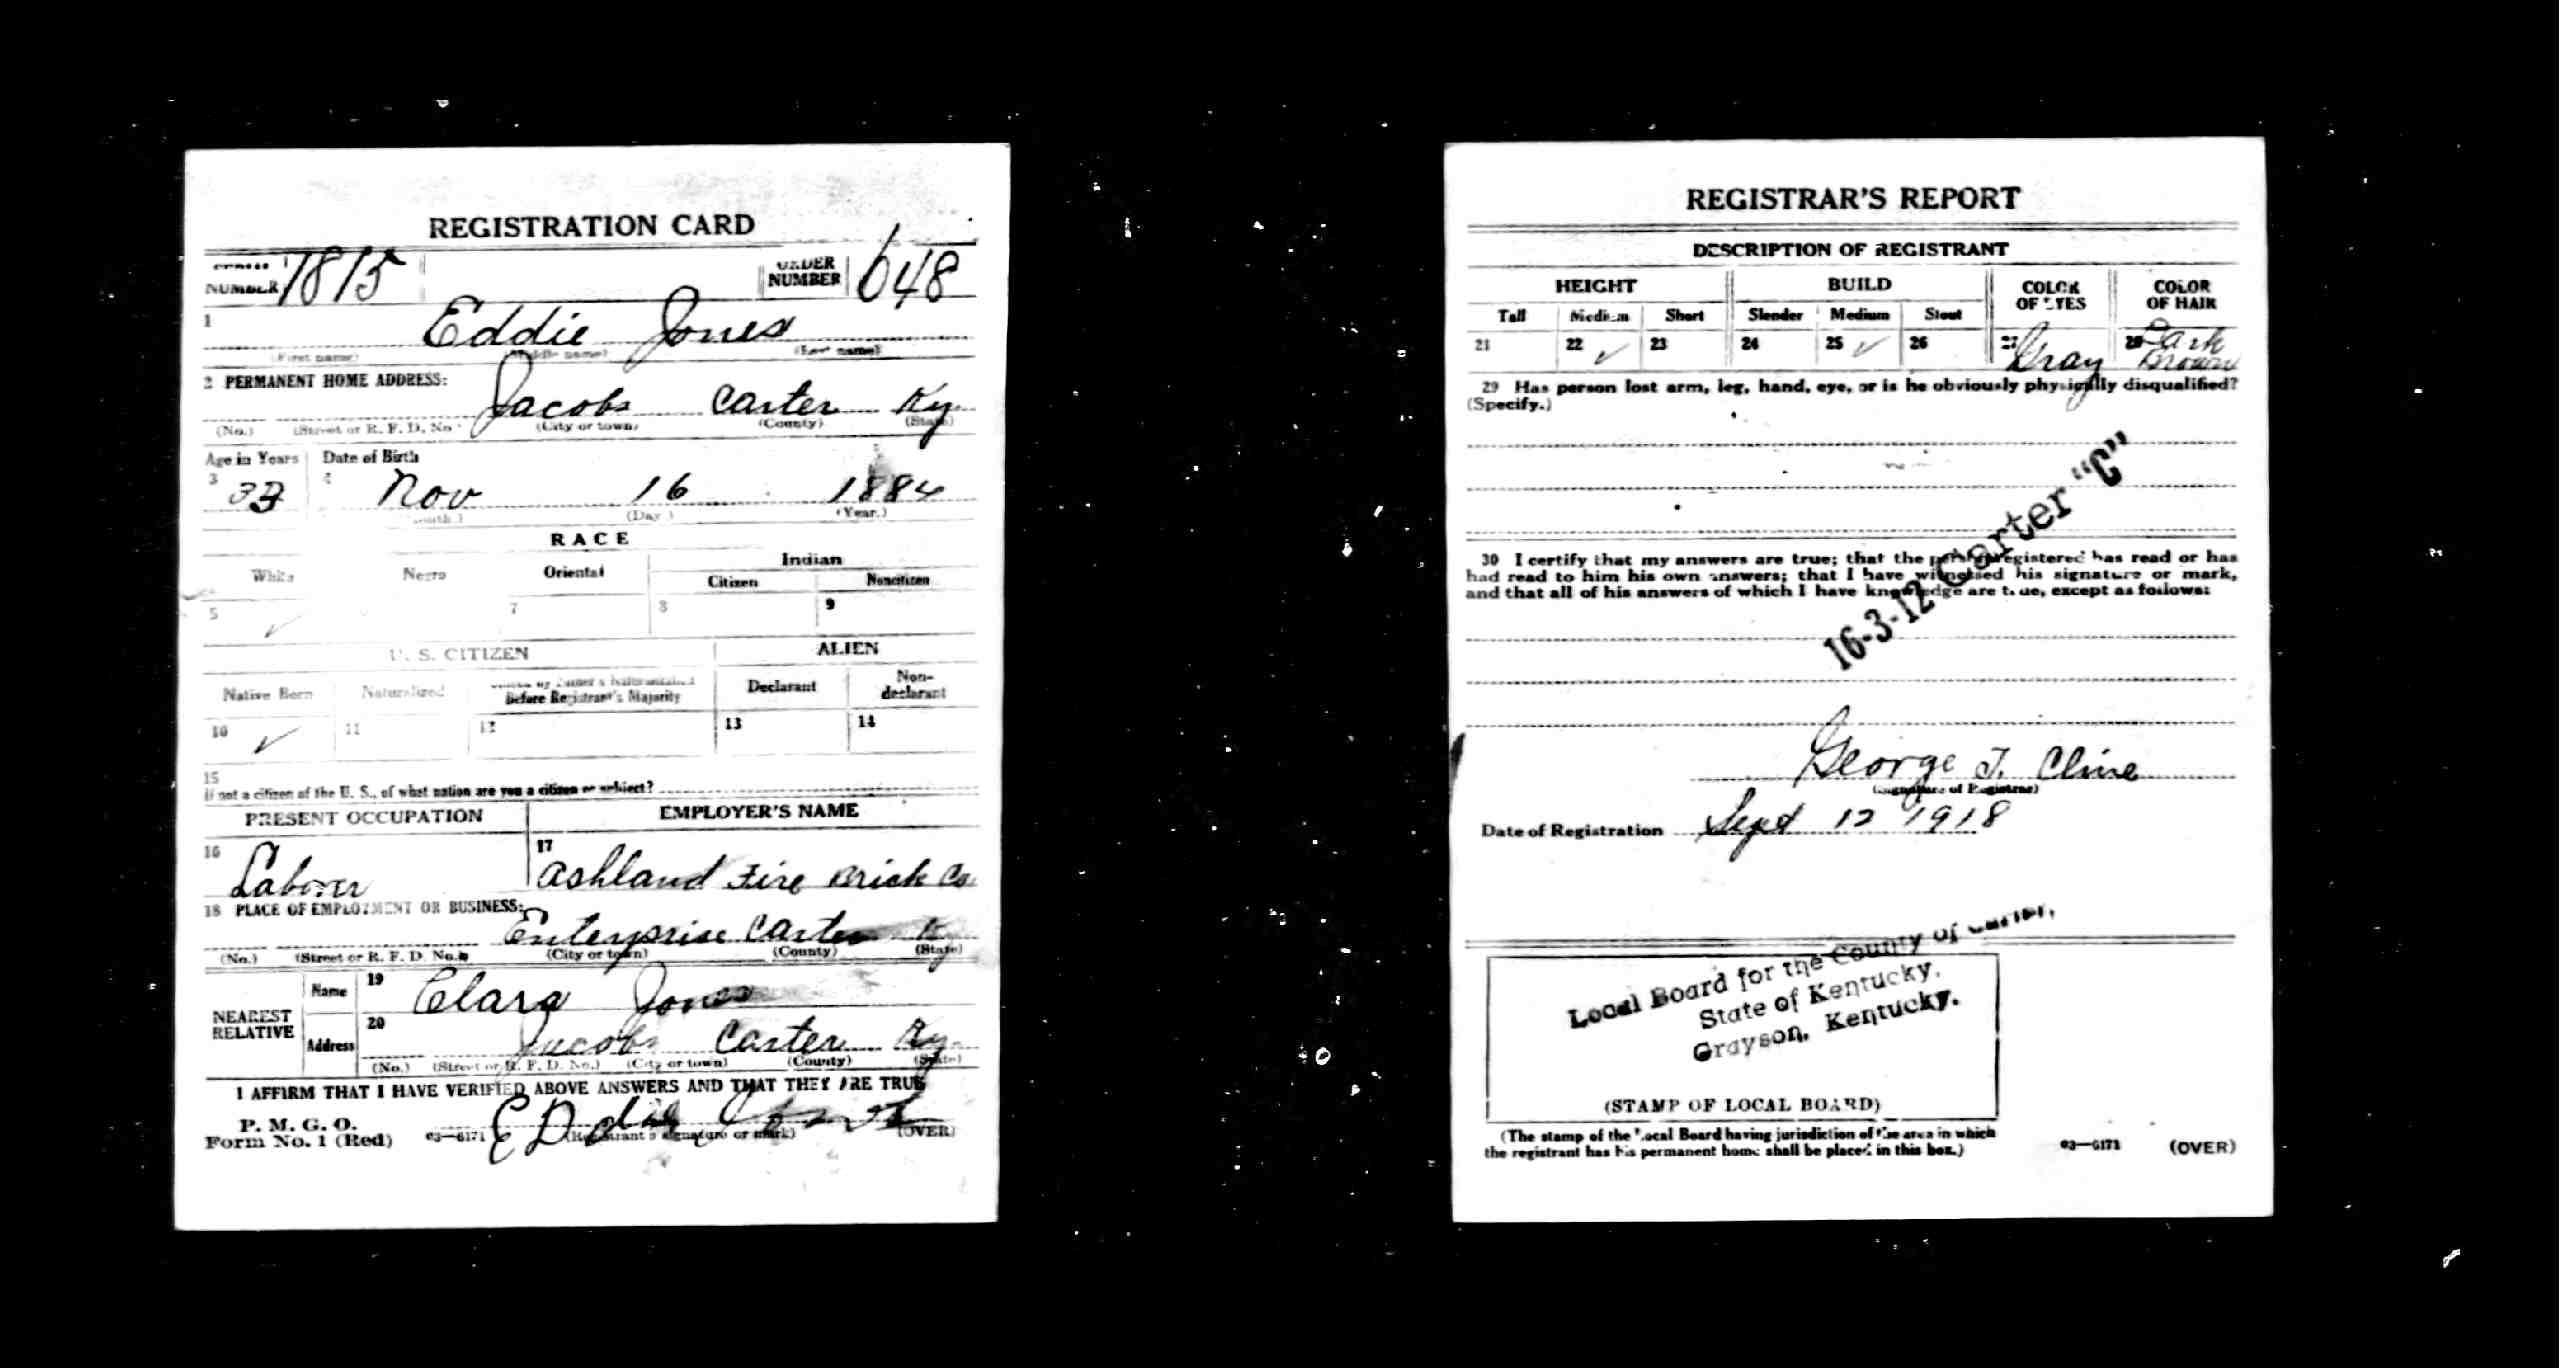 REGISTRATION CARD
SERIAL NUMBER 1815 ORDER NUMBER 648
1 Eddie Jones
(First name) (Middle name) (Last name)
2 PERMANENT HOME ADDRESS:
Jacobs Carter Ky.
(No.) (Street or R. F. D. No.) (City or town) (County) (State)
Age in Years Date of Birth
3 33 4 Nov 16 1884
(Month.) (Day.) (Year.)
RACE
White Negro Oriental Indian
Citizen Noncitizen
5 ✓ 7 8 9
U. S. CITIZEN ALIEN
Native Born Naturalized Citizen by Father's Naturalization Before Registrant's Majority Declarant Non-declarant
10 ✓ 11 12 13 14
15
If not a citizen of the U. S., of what nation are you a citizen or subject?
PRESENT OCCUPATION EMPLOYER'S NAME
16 Laborer 17 Ashland Fire Brick Co.
18 PLACE OF EMPLOYMENT OR BUSINESS:
Enterprise Carter Ky
(No.) (Street or R. F. D. No.) (City or town) (County) (State)
NEAREST RELATIVE
Name 19 Clara Jones
Address 20 Jacobs Carter Ky.
(No.) (Street or R. F. D. No.) (City or town) (County) (State)
I AFFIRM THAT I HAVE VERIFIED ABOVE ANSWERS AND THAT THEY ARE TRUE
P. M. G. O.
Form No. 1 (Red) 03—6171 EDdie Jones (OVER)
(Registrant's signature or mark)
REGISTRAR'S REPORT
DESCRIPTION OF REGISTRANT
HEIGHT BUILD COLOR OF EYES COLOR OF HAIR
Tall Medium Short Slender Medium Stout
21 22 ✓ 23 24 25 ✓ 26 27 Gray 28 Dark Brown
29 Has person lost arm, leg, hand, eye, or is he obviously physically disqualified?
(Specify.)
30 I certify that my answers are true; that the person registered has read or has
had read to him his own answers; that I have witnessed his signature or mark,
and that all of his answers of which I have knowledge are true, except as follows:
16-3-12 Carter "C"
George T. Cline
(Signature of Registrar)
Date of Registration Sept 12 1918
Local Board for the County of Carter,
State of Kentucky.
Grayson, Kentucky.
(STAMP OF LOCAL BOARD)
(The stamp of the Local Board having jurisdiction of the area in which
the registrant has his permanent home shall be placed in this box.)
03—6171 (OVER)